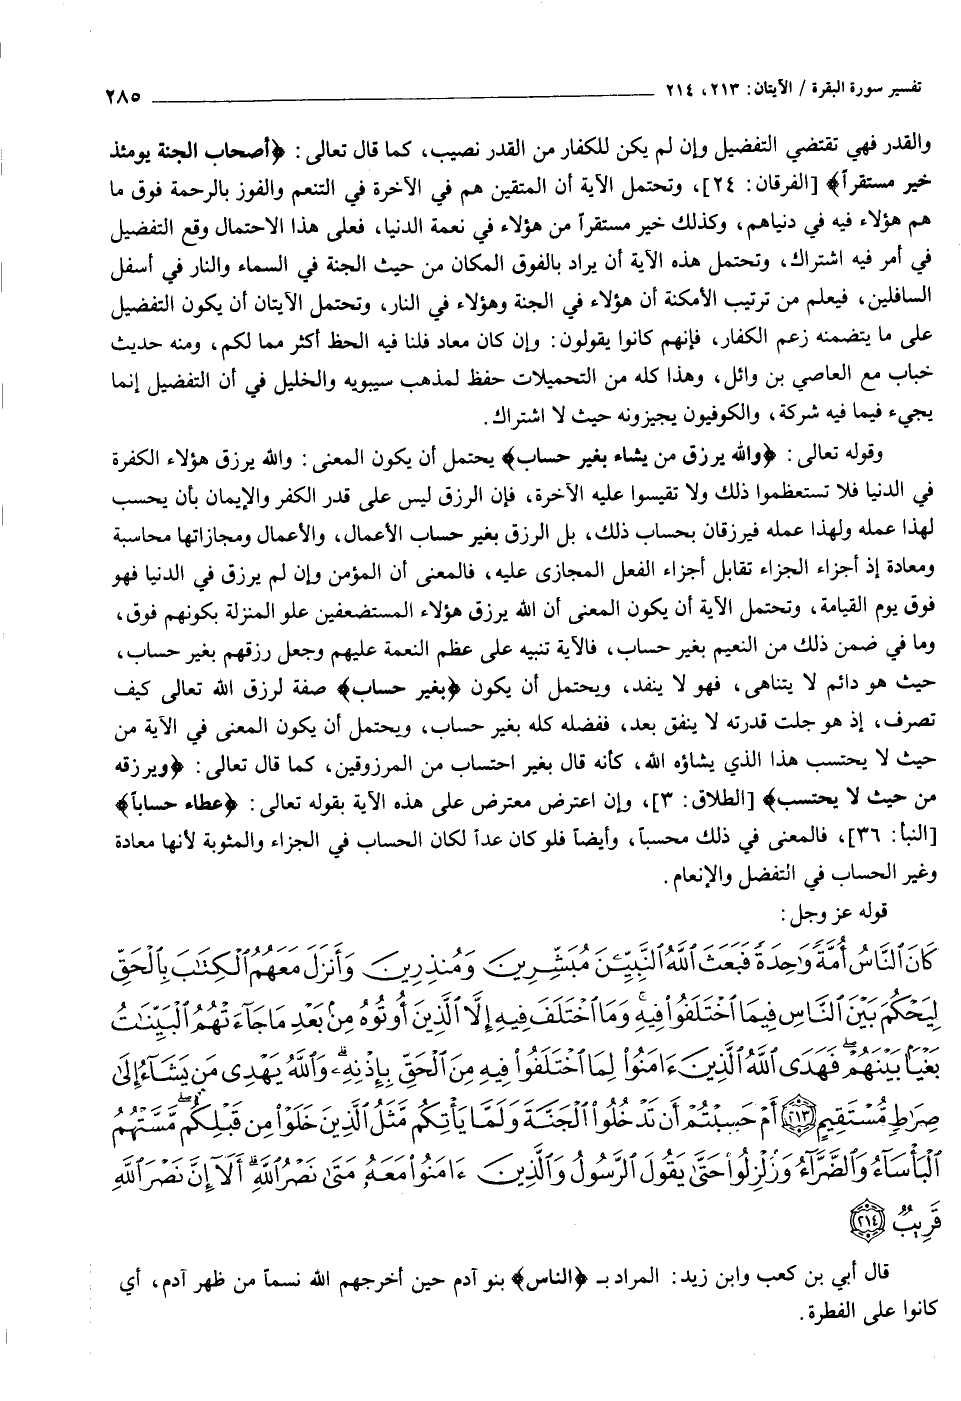 تفسير سورة البقرة / الآيتان: ٢١٣، ٢١٤ ٢٨٥
والقدر فهي تقتضي التفضيل وإن لم يكن للكفار من القدر نصيب، كما قال تعالى: ﴿أصحاب الجنة يومئذ
خير مستقراً﴾ [الفرقان: ٢٤]، وتحتمل الآية أن المتقين هم في الآخرة في التنعم والفوز بالرحمة فوق ما
هم هؤلاء فيه في دنياهم، وكذلك خير مستقراً من هؤلاء في نعمة الدنيا، فعلى هذا الاحتمال وقع التفضيل
في أمر فيه اشتراك، وتحتمل هذه الآية أن يراد بالفوق المكان من حيث الجنة في السماء والنار في أسفل
السافلين، فيعلم من ترتيب الأمكنة أن هؤلاء في الجنة وهؤلاء في النار، وتحتمل الآيتان أن يكون التفضيل
على ما يتضمنه زعم الكفار، فإنهم كانوا يقولون: وإن كان معاد فلنا فيه الحظ أكثر مما لكم، ومنه حديث
خباب مع العاصي بن وائل، وهذا كله من التحميلات حفظ لمذهب سيبويه والخليل في أن التفضيل إنما
يجيء فيما فيه شركة، والكوفيون يجيزونه حيث لا اشتراك.
وقوله تعالى: ﴿والله يرزق من يشاء بغير حساب﴾ يحتمل أن يكون المعنى: والله يرزق هؤلاء الكفرة
في الدنيا فلا تستعظموا ذلك ولا تقيسوا عليه الآخرة، فإن الرزق ليس على قدر الكفر والإيمان بأن يحسب
لهذا عمله ولهذا عمله فيرزقان بحساب ذلك، بل الرزق بغير حساب الأعمال، والأعمال ومجازاتها محاسبة
ومعادة إذ أجزاء الجزاء تقابل أجزاء الفعل المجازى عليه، فالمعنى أن المؤمن وإن لم يرزق في الدنيا فهو
فوق يوم القيامة، وتحتمل الآية أن يكون المعنى أن الله يرزق هؤلاء المستضعفين علو المنزلة بكونهم فوق،
وما في ضمن ذلك من النعيم بغير حساب، فالآية تنبيه على عظم النعمة عليهم وجعل رزقهم بغير حساب،
حيث هو دائم لا يتناهى، فهو لا ينفد، ويحتمل أن يكون ﴿بغير حساب﴾ صفة لرزق الله تعالى كيف
تصرف، إذ هو جلت قدرته لا ينفق بعد، ففضله كله بغير حساب، ويحتمل أن يكون المعنى في الآية من
حيث لا يحتسب هذا الذي يشاؤه الله، كأنه قال بغير احتساب من المرزوقين، كما قال تعالى: ﴿ويرزقه
من حيث لا يحتسب﴾ [الطلاق: ٣]، وإن اعترض معترض على هذه الآية بقوله تعالى: ﴿عطاء حساباً﴾
[النبأ: ٣٦]، فالمعنى في ذلك محسباً، وأيضاً فلو كان عداً لكان الحساب في الجزاء والمثوبة لأنها معادة
وغير الحساب في التفضل والإنعام.
قوله عز وجل:
كَانَ ٱلنَّاسُ أُمَّةً وَٰحِدَةً فَبَعَثَ ٱللَّهُ ٱلنَّبِيِّۦنَ مُبَشِّرِينَ وَمُنذِرِينَ وَأَنزَلَ مَعَهُمُ ٱلْكِتَٰبَ بِٱلْحَقِّ
لِيَحْكُمَ بَيْنَ ٱلنَّاسِ فِيمَا ٱخْتَلَفُوا۟ فِيهِ ۚ وَمَا ٱخْتَلَفَ فِيهِ إِلَّا ٱلَّذِينَ أُوتُوهُ مِنۢ بَعْدِ مَا جَآءَتْهُمُ ٱلْبَيِّنَٰتُ
بَغْيًۢا بَيْنَهُمْ ۖ فَهَدَى ٱللَّهُ ٱلَّذِينَ ءَامَنُوا۟ لِمَا ٱخْتَلَفُوا۟ فِيهِ مِنَ ٱلْحَقِّ بِإِذْنِهِۦ ۗ وَٱللَّهُ يَهْدِى مَن يَشَآءُ إِلَىٰ
صِرَٰطٍ مُّسْتَقِيمٍ ٢١٣ أَمْ حَسِبْتُمْ أَن تَدْخُلُوا۟ ٱلْجَنَّةَ وَلَمَّا يَأْتِكُم مَّثَلُ ٱلَّذِينَ خَلَوْا۟ مِن قَبْلِكُم ۖ مَّسَّتْهُمُ
ٱلْبَأْسَآءُ وَٱلضَّرَّآءُ وَزُلْزِلُوا۟ حَتَّىٰ يَقُولَ ٱلرَّسُولُ وَٱلَّذِينَ ءَامَنُوا۟ مَعَهُۥ مَتَىٰ نَصْرُ ٱللَّهِ ۗ أَلَآ إِنَّ نَصْرَ ٱللَّهِ
قَرِيبٌ ٢١٤
قال أبي بن كعب وابن زيد: المراد بـ ﴿الناس﴾ بنو آدم حين أخرجهم الله نسماً من ظهر آدم، أي
كانوا على الفطرة.